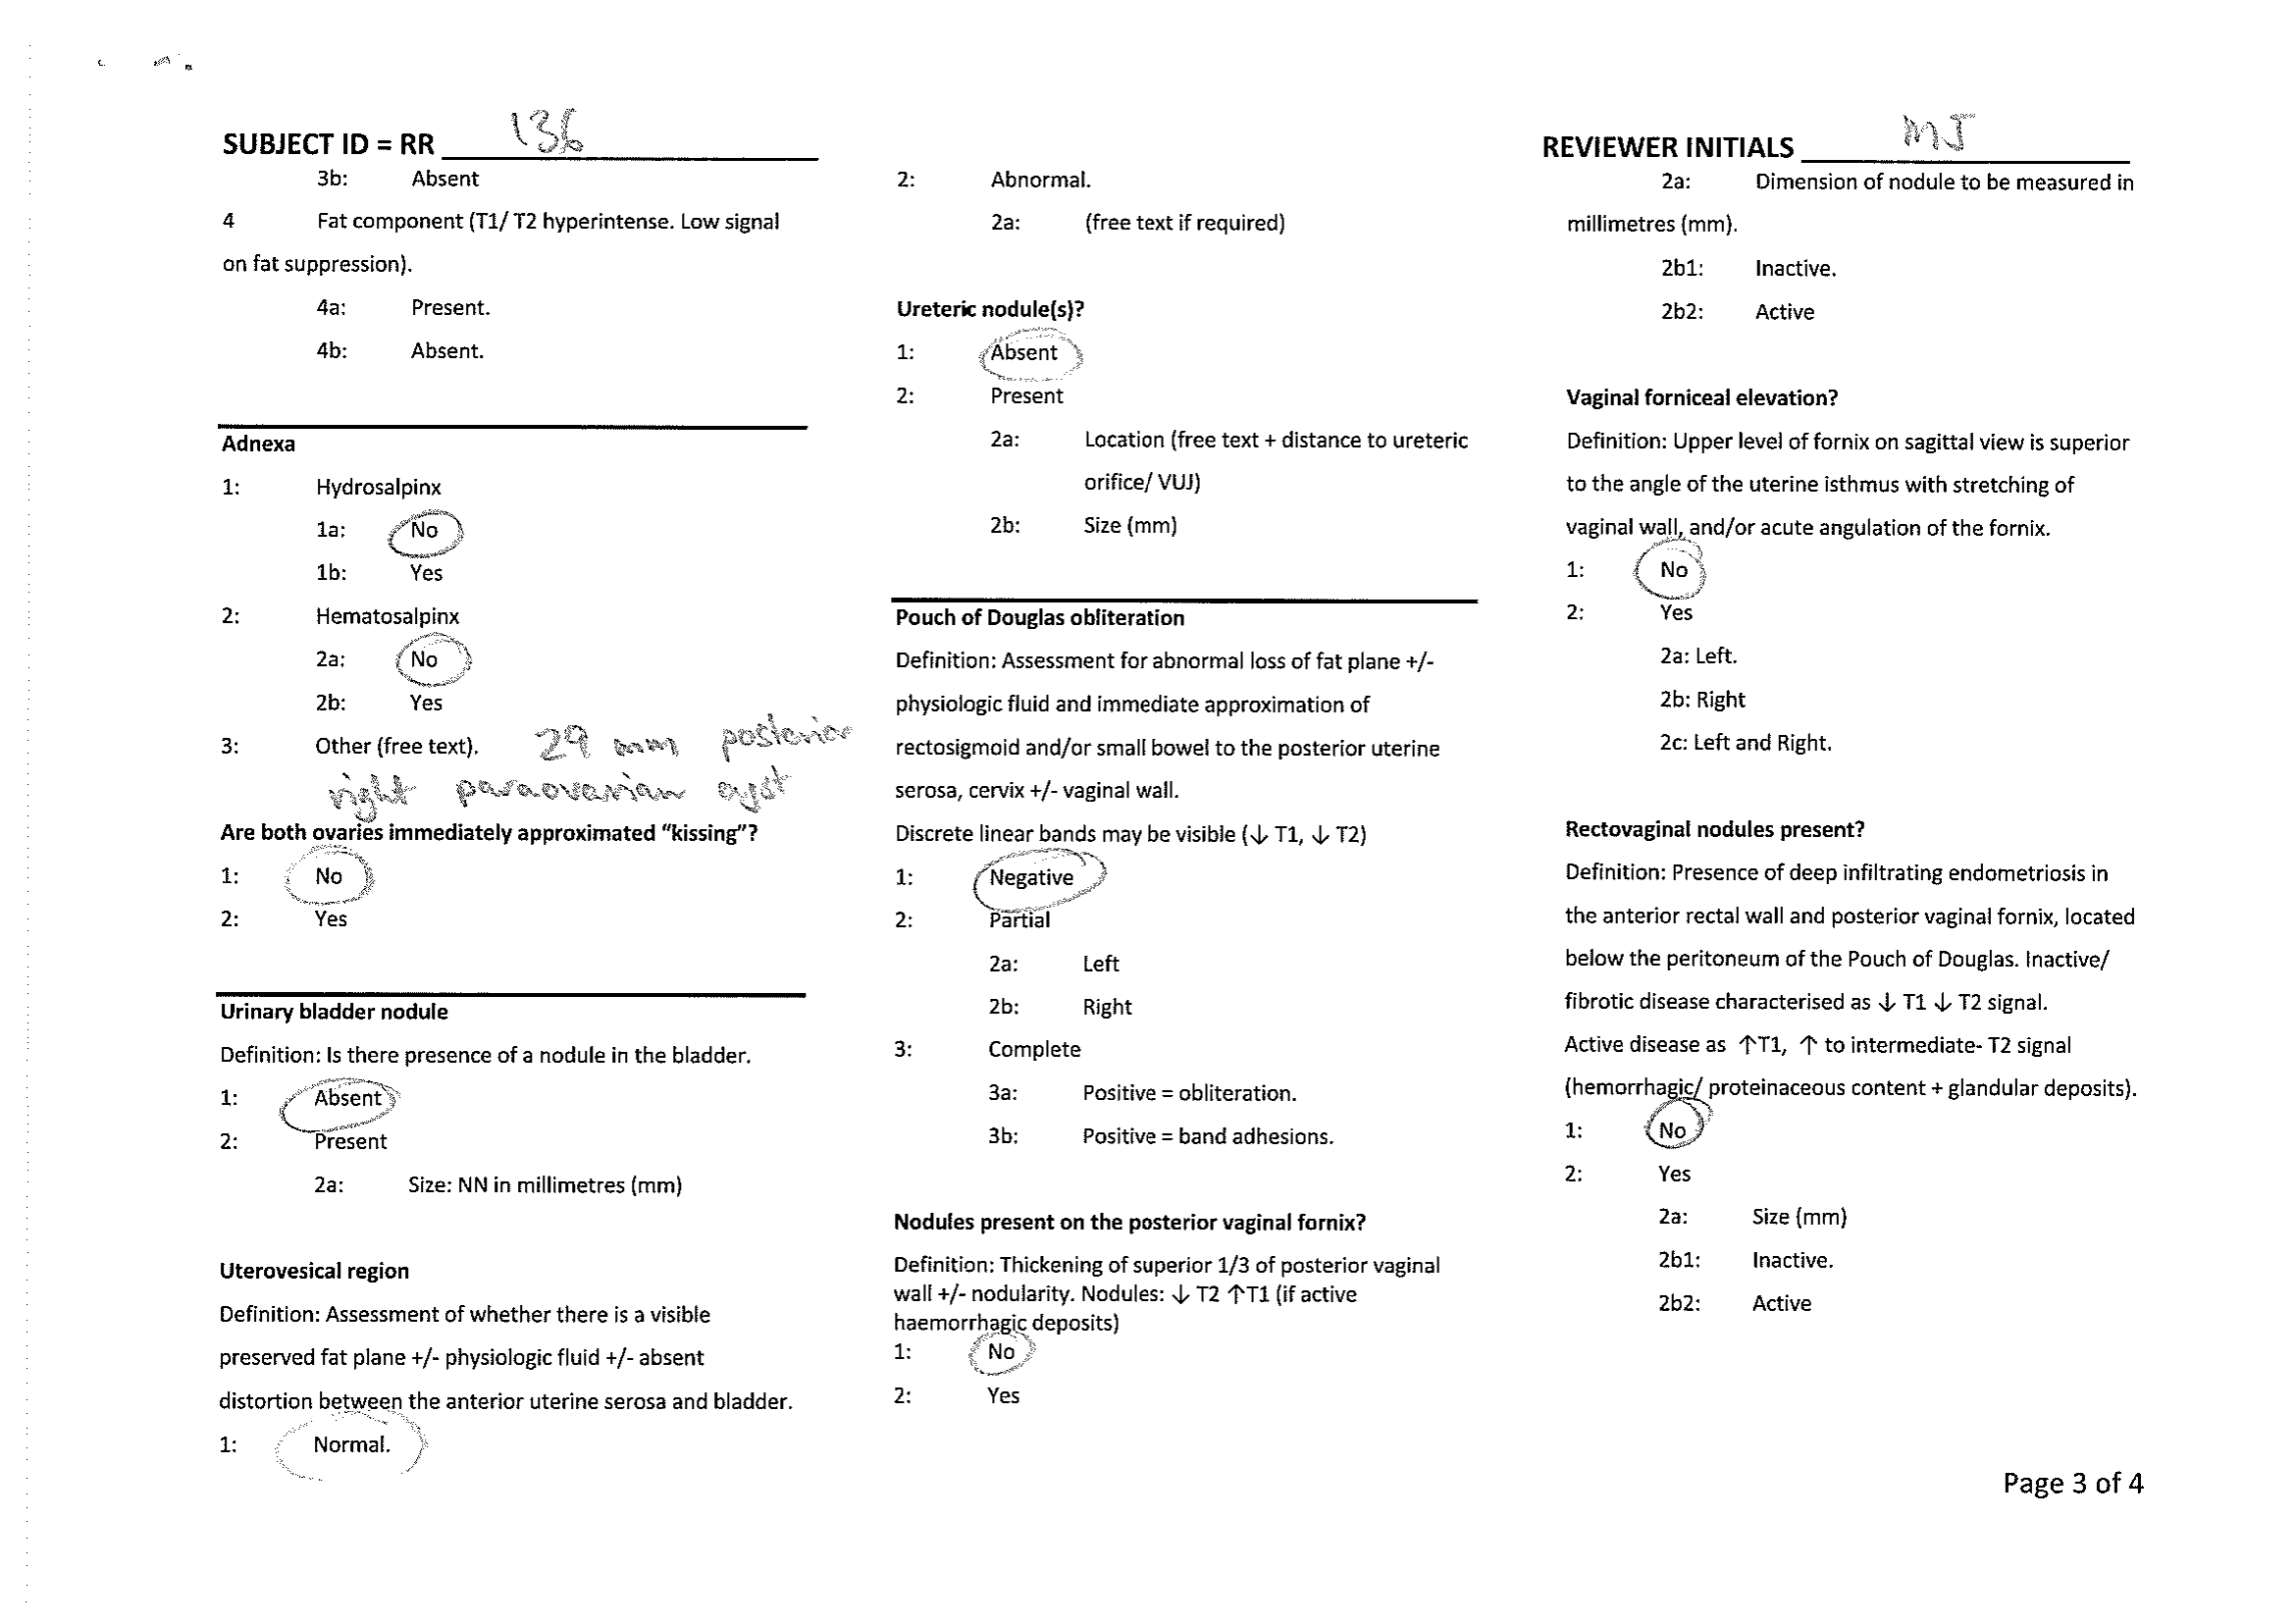 SUBJECT ID = RR 136
3b: Absent
4 Fat component (T1/ T2 hyperintense. Low signal
on fat suppression).
4a: Present.
4b: Absent.
Adnexa
1: Hydrosalpinx
1a: No
1b: Yes
2: Hematosalpinx
2a: No
2b: Yes
3: Other (free text). 29 mm posterior
right paraovarian cyst
Are both ovaries immediately approximated “kissing”?
1: No
2: Yes
Urinary bladder nodule
Definition: Is there presence of a nodule in the bladder.
1: Absent
2: Present
2a: Size: NN in millimetres (mm)
Uterovesical region
Definition: Assessment of whether there is a visible
preserved fat plane +/- physiologic fluid +/- absent
distortion between the anterior uterine serosa and bladder.
1: Normal.
2: Abnormal.
2a: (free text if required)
Ureteric nodule(s)?
1: Absent
2: Present
2a: Location (free text + distance to ureteric
orifice/ VUJ)
2b: Size (mm)
Pouch of Douglas obliteration
Definition: Assessment for abnormal loss of fat plane +/-
physiologic fluid and immediate approximation of
rectosigmoid and/or small bowel to the posterior uterine
serosa, cervix +/- vaginal wall.
Discrete linear bands may be visible (↓ T1, ↓ T2)
1: Negative
2: Partial
2a: Left
2b: Right
3: Complete
3a: Positive = obliteration.
3b: Positive = band adhesions.
Nodules present on the posterior vaginal fornix?
Definition: Thickening of superior 1/3 of posterior vaginal
wall +/- nodularity. Nodules: ↓ T2 ↑T1 (if active
haemorrhagic deposits)
1: No
2: Yes
REVIEWER INITIALS MJ
2a: Dimension of nodule to be measured in
millimetres (mm).
2b1: Inactive.
2b2: Active
Vaginal forniceal elevation?
Definition: Upper level of fornix on sagittal view is superior
to the angle of the uterine isthmus with stretching of
vaginal wall, and/or acute angulation of the fornix.
1: No
2: Yes
2a: Left.
2b: Right
2c: Left and Right.
Rectovaginal nodules present?
Definition: Presence of deep infiltrating endometriosis in
the anterior rectal wall and posterior vaginal fornix, located
below the peritoneum of the Pouch of Douglas. Inactive/
fibrotic disease characterised as ↓ T1 ↓ T2 signal.
Active disease as ↑T1, ↑ to intermediate- T2 signal
(hemorrhagic/ proteinaceous content + glandular deposits).
1: No
2: Yes
2a: Size (mm)
2b1: Inactive.
2b2: Active
Page 3 of 4